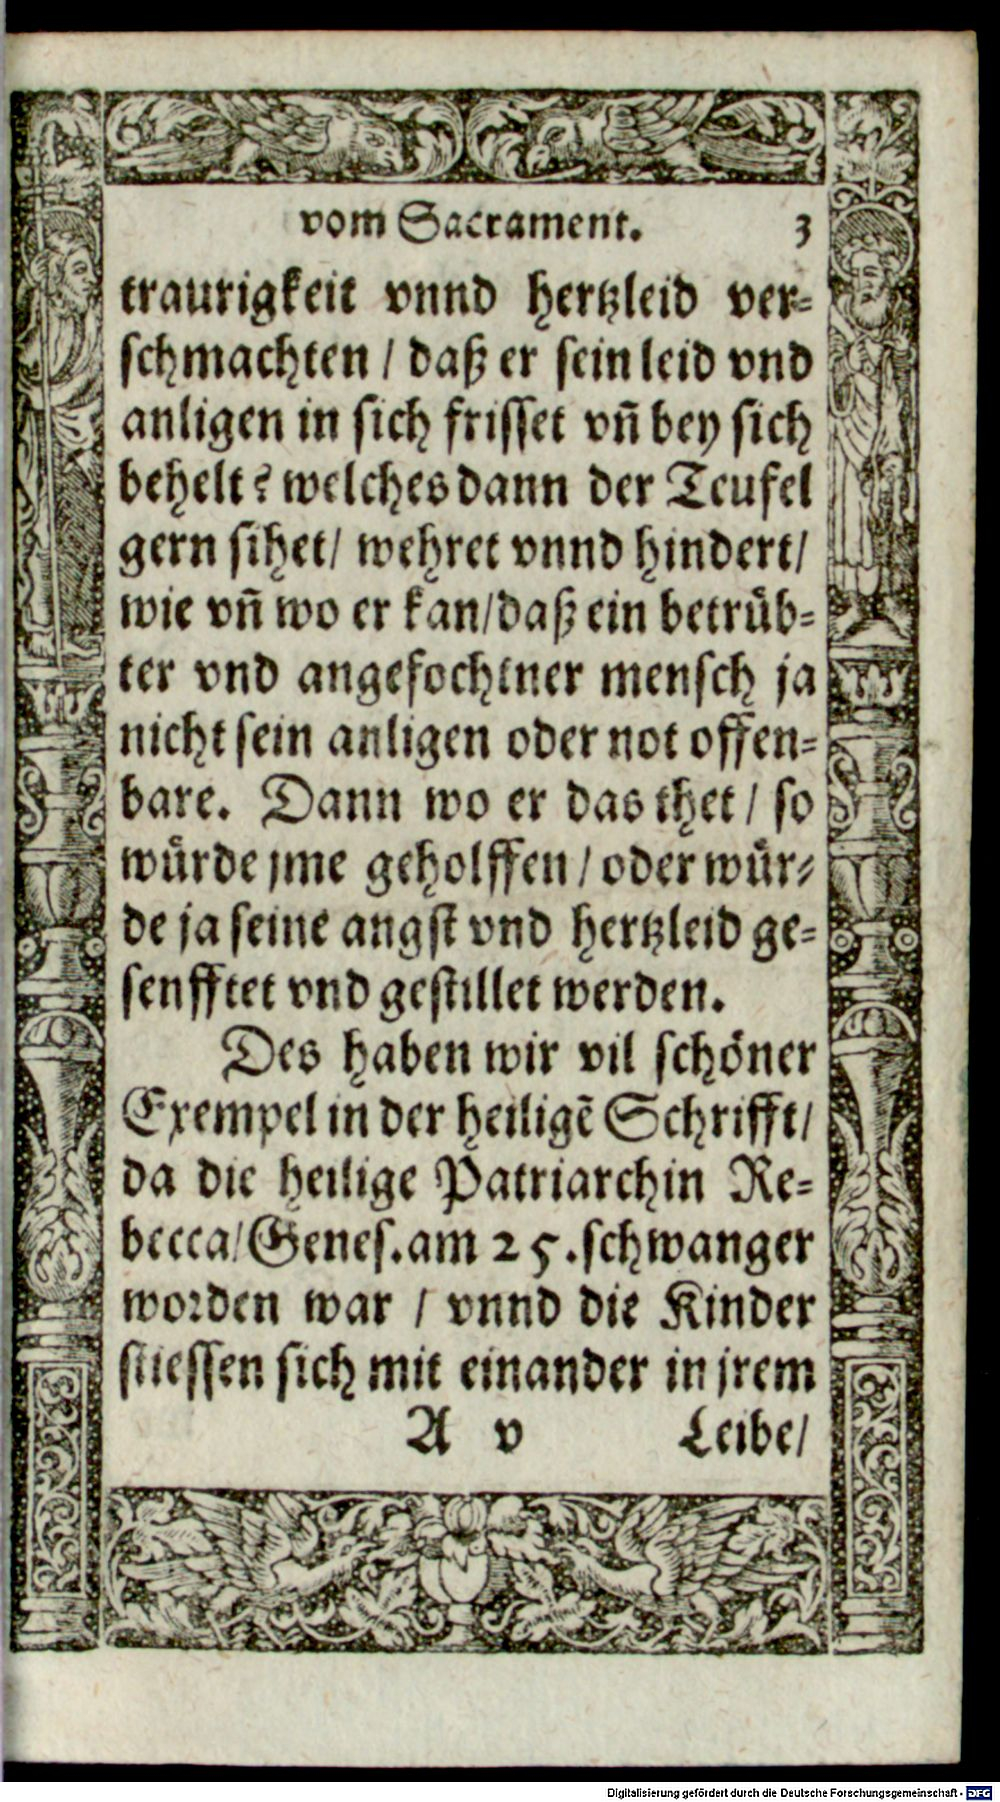 vom Sacrament. 3
traurigkeit vnnd hertzleid ver-
schmachten / daß er sein leid vnd
anligen in sich frisset vñ bey sich
behelt? welches dann der Teufel
gern sihet/ wehret vnnd hindert/
wie vñ wo er kan/daß ein betrüb-
ter vnd angefochtner mensch ja
nicht sein anligen oder not offen-
bare. Dann wo er das thet / so
würde jme geholffen / oder wür-
de ja seine angst vnd hertzleid ge-
senfftet vnd gestillet werden.
Des haben wir vil schöner
Exempel in der heiligẽ Schrifft/
da die heilige Patriarchin Re-
becca/Genes.am 25.schwanger
worden war / vnnd die Kinder
stiessen sich mit einander in jrem
A v Leibe/
Digitalisierung gefördert durch die Deutsche Forschungsgemeinschaft - DFG